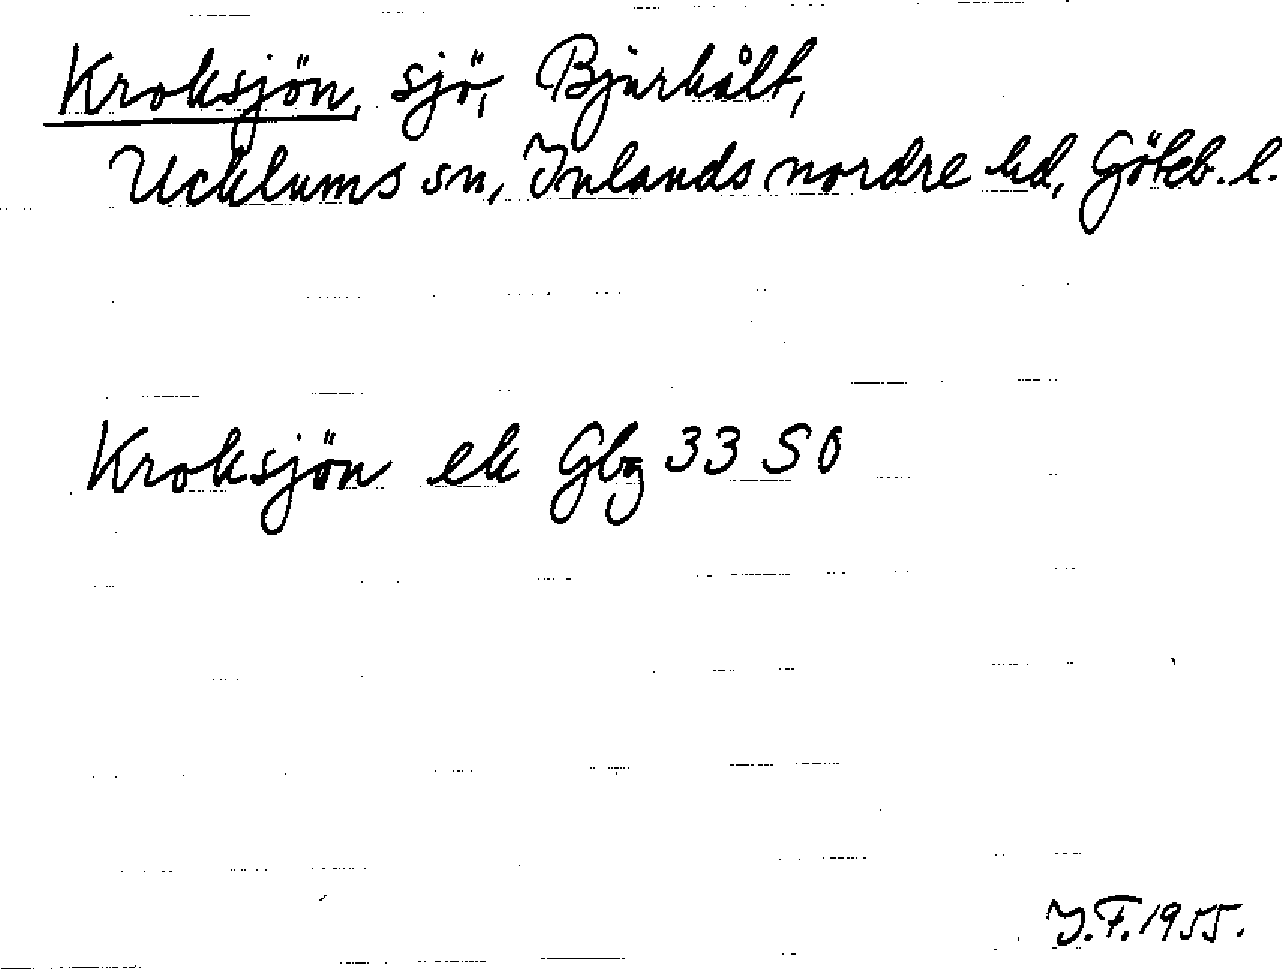 Kroksjön, sjö, Bjurhålt,
Ucklums sn, Inlands nordre hd, Göteb. l.
Kroksjön ek Gbg 33 SO
I.F. 1955.